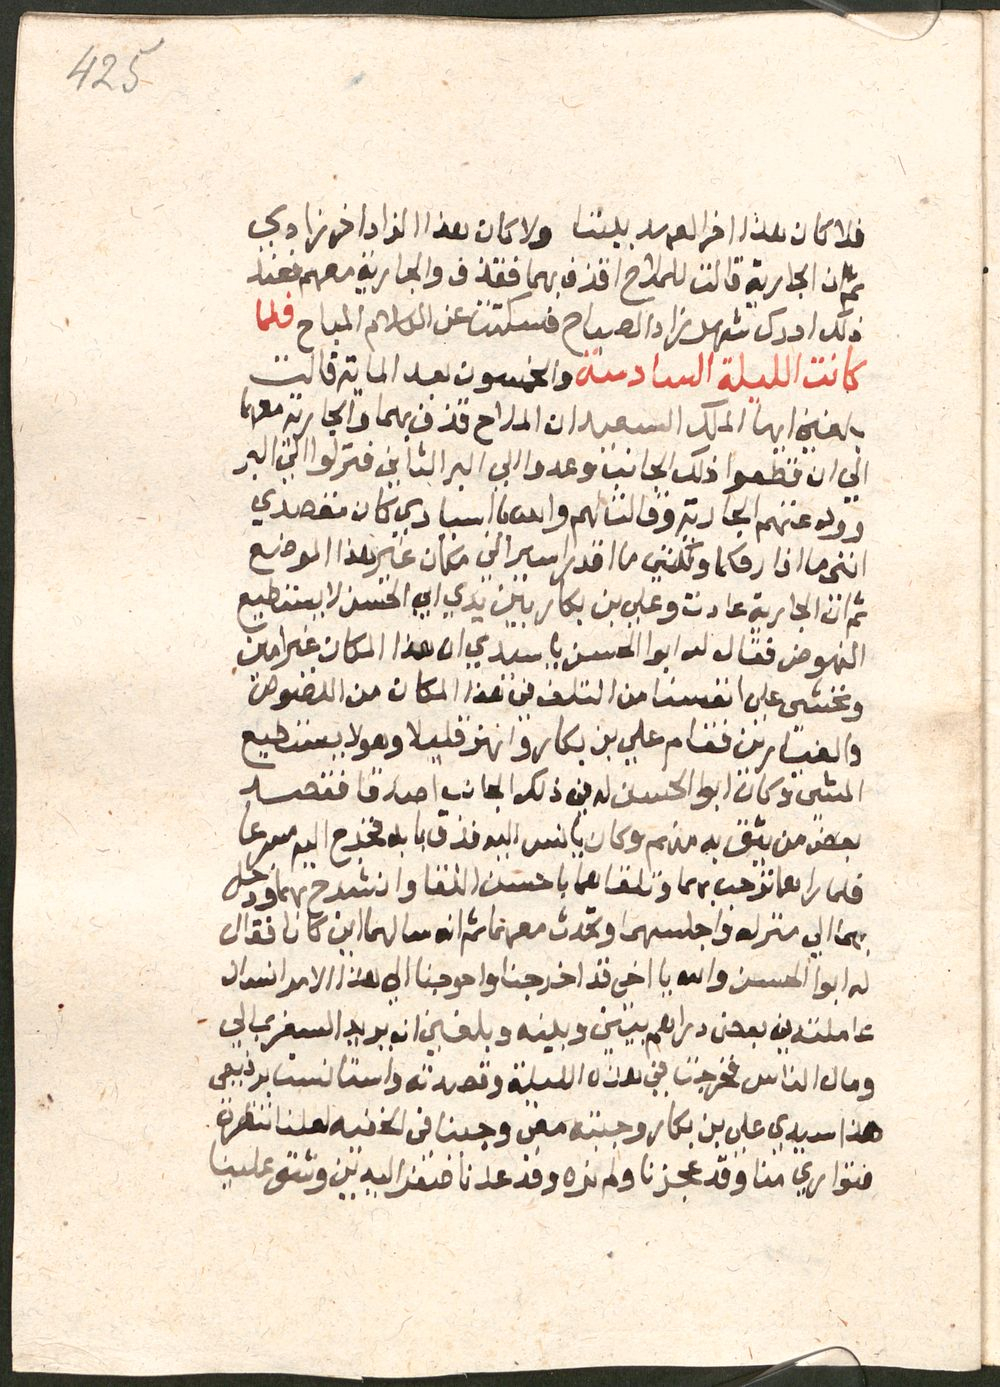 425
فلا كان هذا اخر العهد بيننا ولا كان هذا الزاد اخر زادي
ثم ان الجارية قالت للملاح اقذف بهما فقذف والجارية معهم فعند
ذلك ادرك شهرزاد الصباح فسكتت عن الكلام المباح فلما
كانت الليلة السادسة والخمسون بعد الماية قالت
بلغني ايها الملك السعيد ان الملاح قذف بهما والجارية معهما
الي ان قطعوا ذلك الجانب وعدوا الي البر الثاني فنزلوا الي البر
وودعتهم الجارية وقالت لهم والله يا اسيادي كان مقصدي
انني ما افارقكما ولكنني ما اقدر اسير الي مكان غير هذا الموضع
ثم ان الجارية عادت وعلي بن بكار بين يدي ابي الحسن لا يستطيع
النهوض فقال له ابوا الحسن يا سيدي ان هذا المكان غير امين
ونخشي علي انفسنا من التلف في هذا المكان من اللصوص
والعيارين فقام علي بن بكار وانهز قليلا وهو لا يستطيع
المشي وكان ابوا الحسن له في ذلك الجانب اصدقا فقصد
بعض من يثق به منهم وكان يانس اليه فدق بابه فخرج اليه مسرعا
فلما راهما ترحب بهما وتلقاهما باحسن الملقا وانشرح بهما ودخل
بهما الي منزله واجلسهما وتحدث معهما ثم انه سالهما اين كانا فقال
له ابوا الحسن والله يا اخي قد اخرجنا واحوجنا الي هذا الامر انسان
عاملته في بعض دراهم بيني وبينه وبلغني انه يريد السفر بمالي
ومال الناس فخرجت في هذه الليلة وقصدته واستانست برفيقي
هذا سيدي علي بن بكار وجبته معي وجينا في الخفيه لعلنا ننظره
فتواري منا وقد عجزنا ولم نره وقد عدنا صفر اليدين وشق علينا